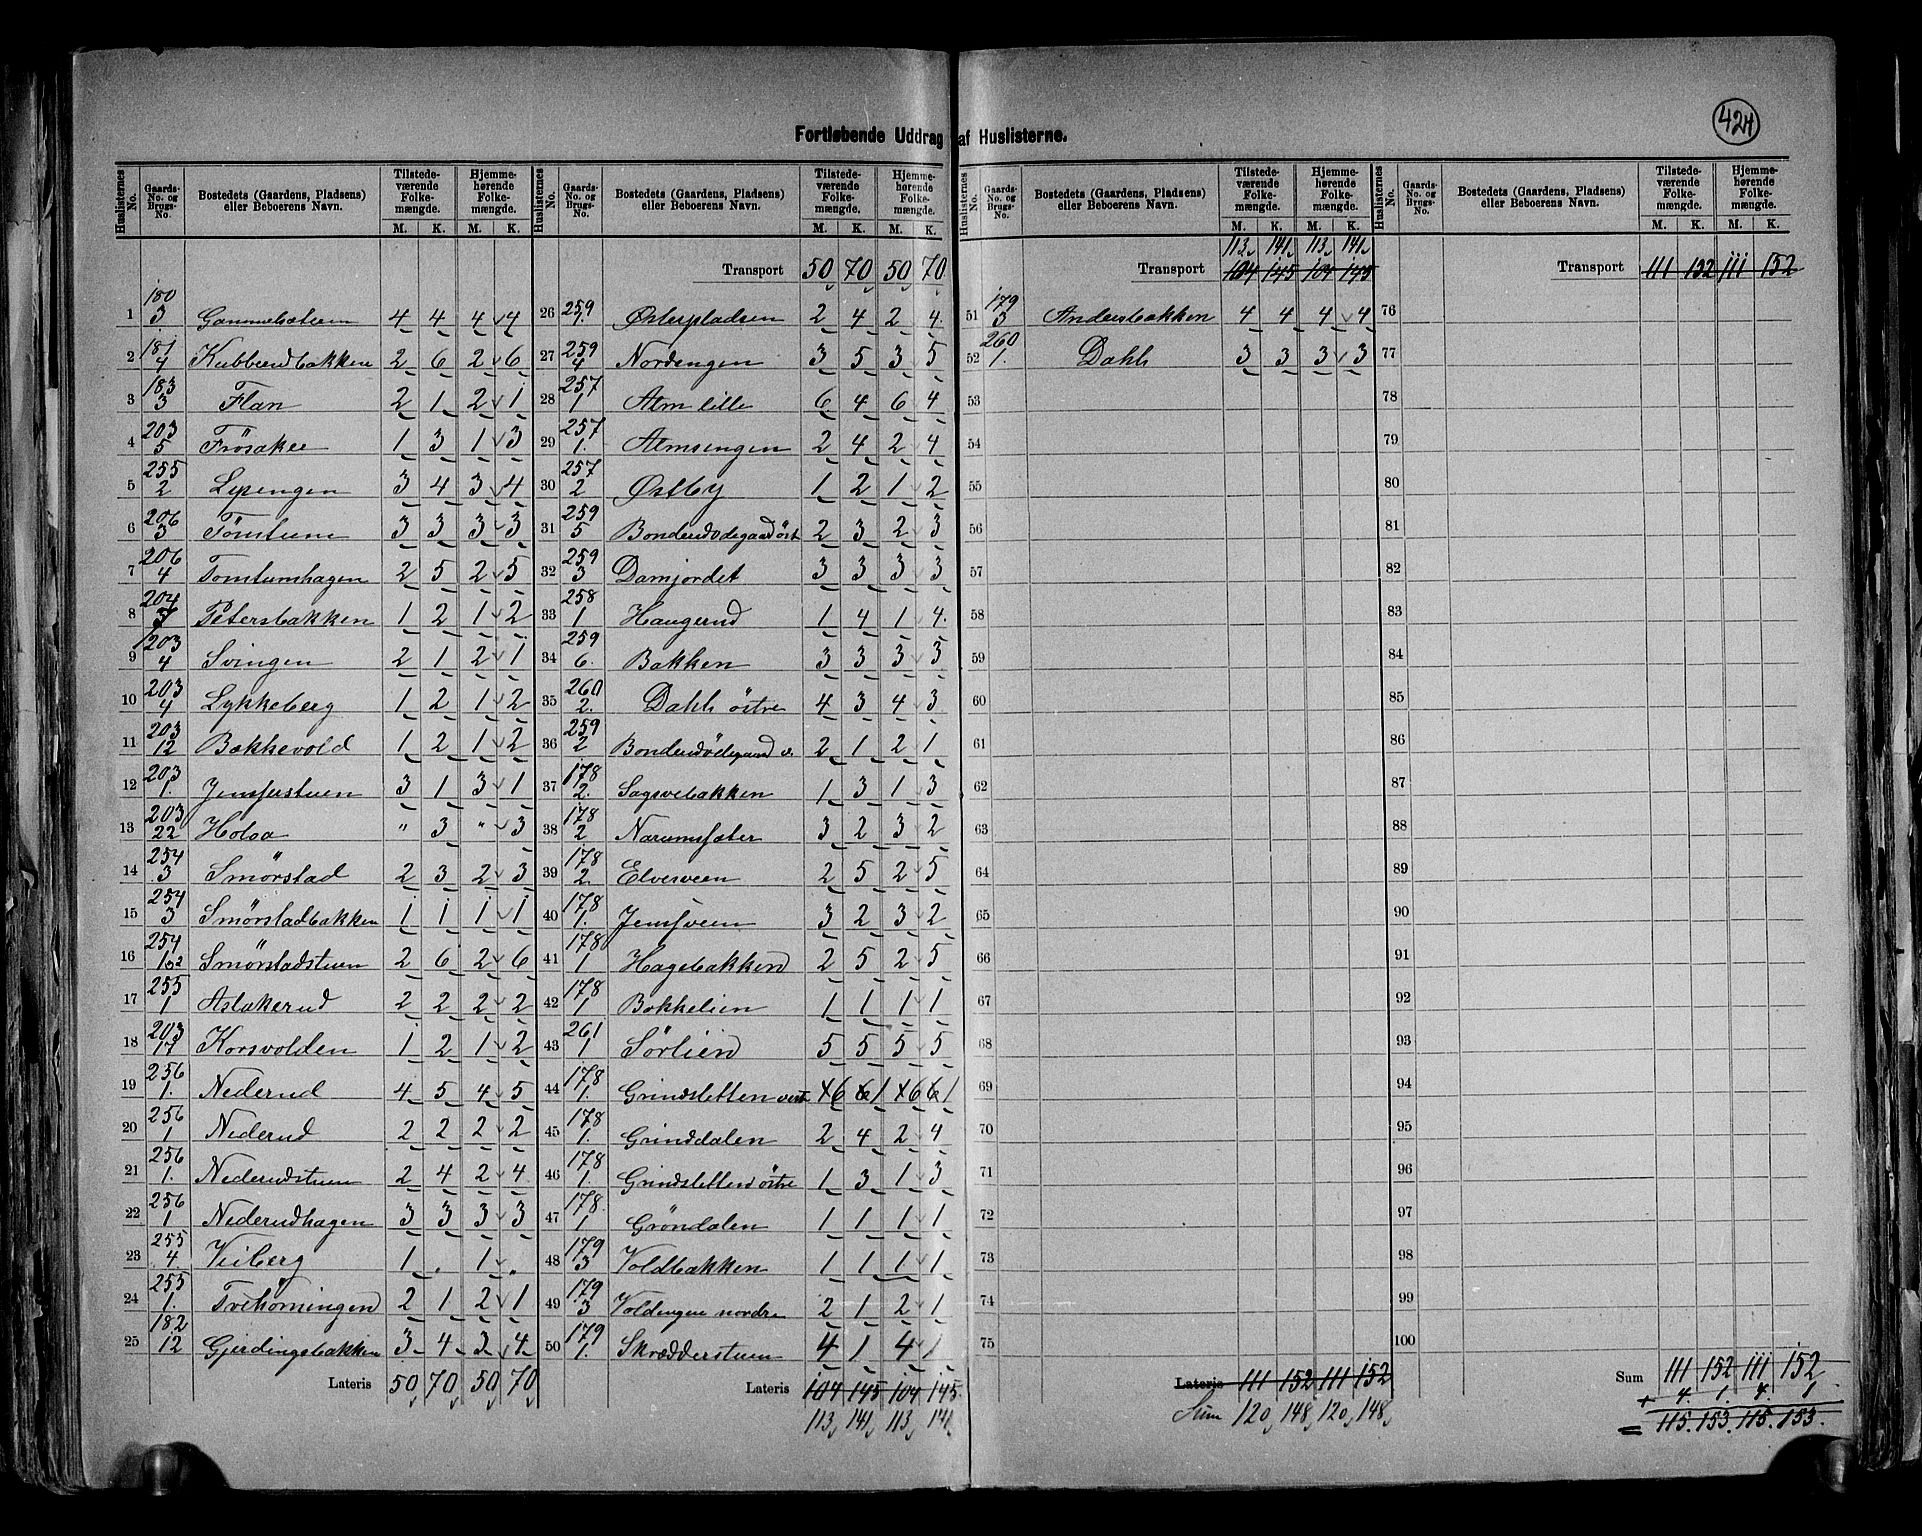 424
Fortløbende Uddrag af Huslisterne.
Huslisternes No. Gaards-No. og Brugs-No. Bostedets (Gaardens, Pladsens) eller Beboerens Navn. Tilstedeværende Folkemængde. M. K. Hjemmehørende Folkemængde. M. K.
Huslisternes No. Gaards-No. og Brugs-No. Bostedets (Gaardens, Pladsens) eller Beboerens Navn. Tilstedeværende Folkemængde. M. K. Hjemmehørende Folkemængde. M. K.
Huslisternes No. Gaards-No. og Brugs-No. Bostedets (Gaardens, Pladsens) eller Beboerens Navn. Tilstedeværende Folkemængde. M. K. Hjemmehørende Folkemængde. M. K.
Huslisternes No. Gaards-No. og Brugs-No. Bostedets (Gaardens, Pladsens) eller Beboerens Navn. Tilstedeværende Folkemængde. M. K. Hjemmehørende Folkemængde. M. K.
1 180/3 4 4 4 4
2 181/4 Kubberudbakken 2 6 2 6
3 183/3 Flan 2 1 2 1
4 203/5 Frösaker 1 3 1 3
5 255/2 3 4 3 4
6 206/3 Tømtum 3 3 3 3
7 206/4 Tomtumhagen 2 5 2 5
8 204 Petersbakken 1 2 1 2
9 203/4 Svingen 2 1 2 1
10 203/4 Lykkeberg 1 2 1 2
11 203/12 Bakkevold 1 2 1 2
12 203/1. 3 1 3 1
13 203/22 Holaa " 3 " 3
14 254/3 Smörstad 2 3 2 3
15 254/3 Smörstadbakken 1 1 1 1
16 254 Smörstadstuen 2 6 2 6
17 255/1 Aslakerud 2 2 2 2
18 203/17 Korsvolden 1 2 1 2
19 256/1. Nederud 4 5 4 5
20 256/1 Nederud 2 2 2 2
21 256/1. Nederudstuen 2 4 2 4
22 256/1 Nederudhagen 3 3 3 3
23 255/4 Veiberg 1 . 1 .
24 255/1. Tvehörningen 2 1 2 1
25 182/12 Gjerdingsbakken 3 4 3 4
Lateris 50 70 50 70
Transport 50 70 50 70
26 259/1. Østerpladsen 2 4 2 4.
27 259/4 Nordengen 3 5 3 5
28 257/1 Alm lille 6 4 6 4
29 257/1. Almsengen 2 4 2 4
30 257/2 Østby 1 2 1 2
31 259/5 Bonderudödegaard öst 2 3 2 3
32 259/3 Damjordet 3 3 3 3
33 258/1 Haugerud 1 4 1 4.
34 259/6. Bakken 3 3 3 3
35 260/2. Dahls östre 4 3 4 3
36 259/2 Bonderudödegaard v. 2 1 2 1
37 178/2. Sagvebakken 1 3 1 3
38 178/2 Narumsæter 3 2 3 2
39 178/2. Elvesveen 2 5 2 5
40 178/1. Jensveen 3 2 3 2
41 178/1 Hagebakken 2 5 2 5
42 178/1 Bakkelien 1 1 1 1
43 261/1 Sörlien 5 5 5 5
44 178/1. Grindsletten vest 6 1 6 1
45 178/1. Grinddalen 2 4 2 4
46 178/1. Grindsletten östre 1 3 1 3
47 178./1 Gröndalen 1 1 1 1
48 179/3 Voldbakken 1 1 1 1
49 179/3 Voldengen nordre 2 1 2 1
50 179/1. Skrædderstuen 4 1 4 1
Lateris 104 145 104 145
113 141 113 141
113 141 113 141
Transport 104 145 104 145
51 179/3 Andersbakken 4 4 4 4
52 260/1. Dahls 3 3 3 3
53
54
55
56
57
58
59
60
61
62
63
64
65
66
67
68
69
70
71
72
73
74
75
Lateris 111 152 111 152
Sum 120 148 120 148
Transport 111 152 111 152
76
77
78
79
80
81
82
83
84
85
86
87
88
89
90
91
92
93
94
95
96
97
98
99
100
Sum 111 152 111 152
+ 4. 1. 4. 1
= 115. 153. 115. 153.